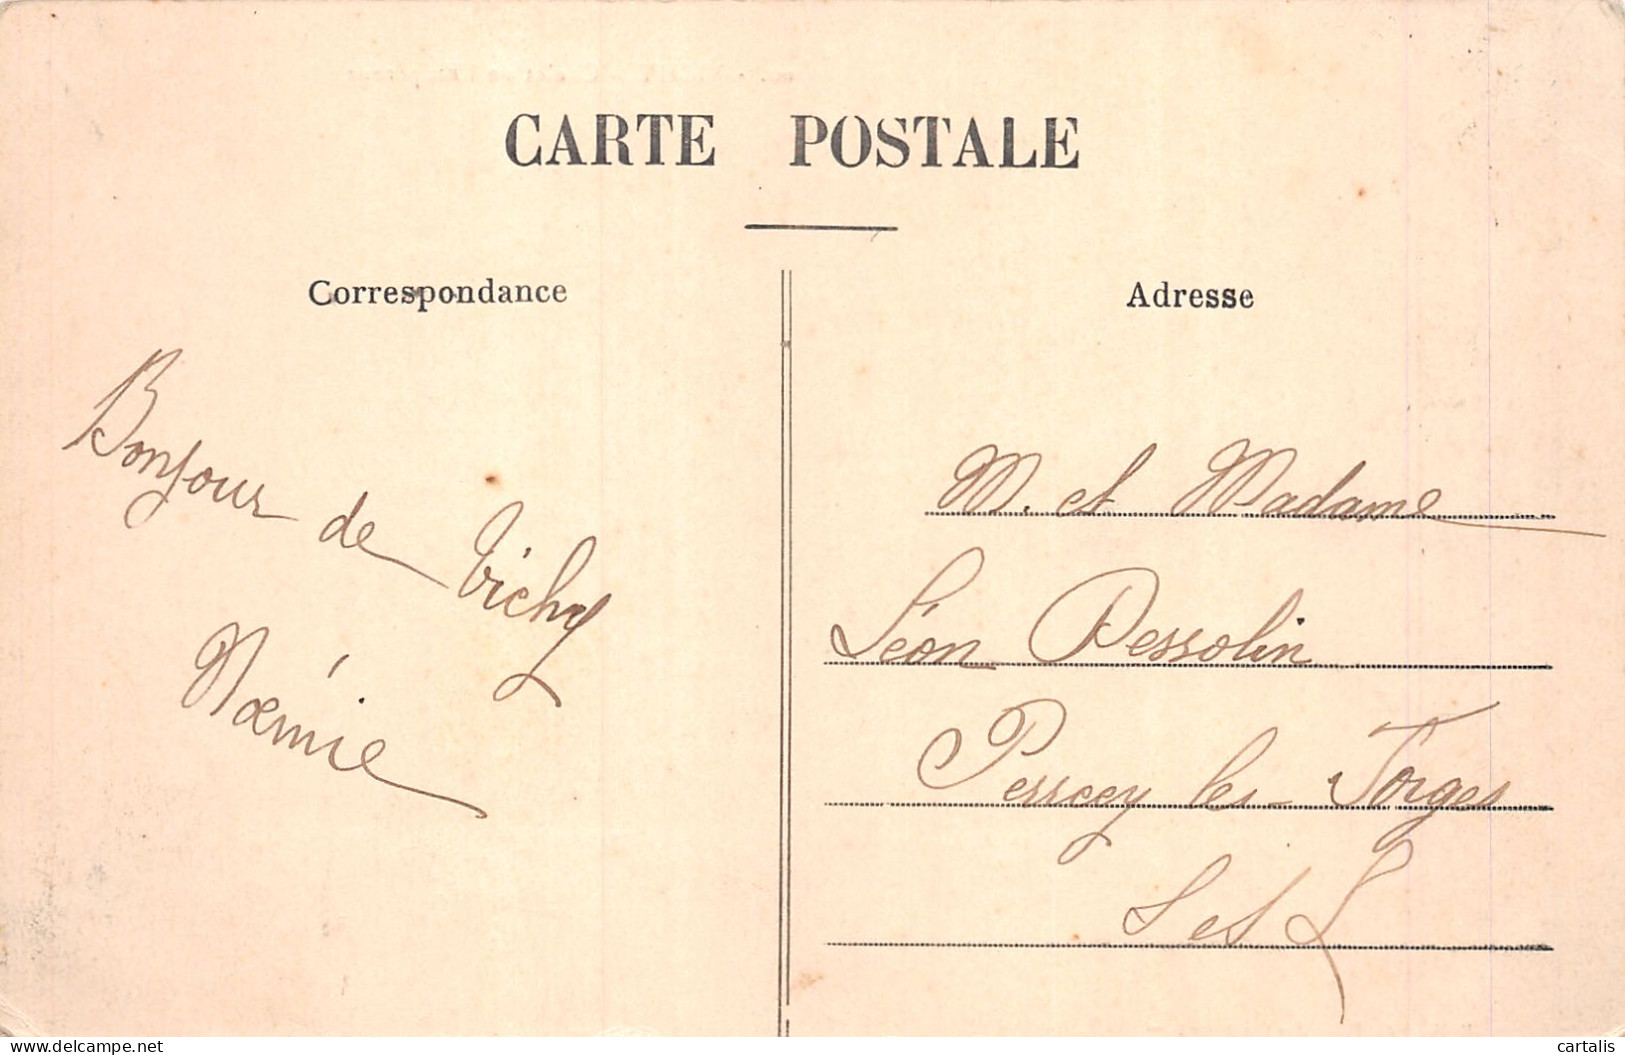 CARTE POSTALE
Correspondance
Bonjour de Vichy
Noémie
Adresse
M. et Madame
Léon Dessolin
Perrecy les Forges
S et L
delcampe.net
cartalis